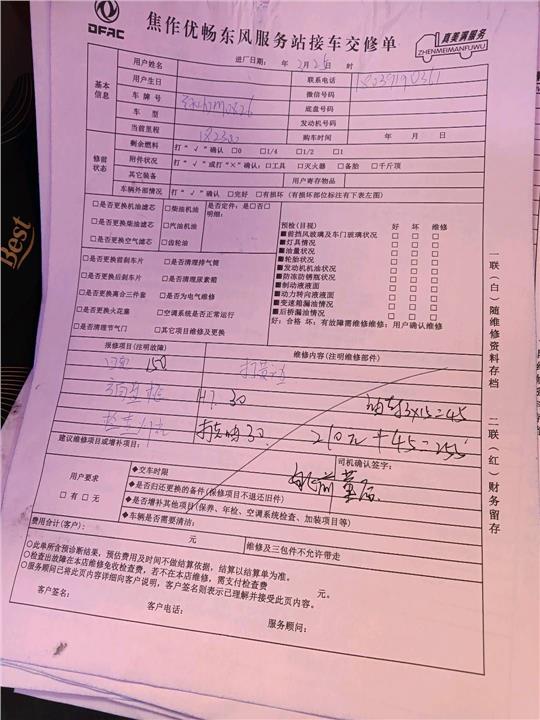 DFAC
焦作优畅东风服务站接车交修单
真美满服务
ZHENMEIMANFUWU
Best
进厂日期: 年 2月25日 时
基本信息
用户姓名
联系电话
用户生日
微信号码
车牌号
底盘号码
车型
发动机号码
当前里程
购车时间 年 月 日
修前状态
剩余燃料 打“√”确认 □0 □1/4 □1/2 □1
附件状况 打“√”或打“×”确认:□工具 □灭火器 □备胎 □千斤顶
其它装备
用户寄存物品
车辆外部情况 打“√”确认 □完好 □有损坏 (有损坏部位标注有下表左图)
□是否更换机油滤芯 □柴油机油 是否定件: 是□否□
明细:
□是否更换柴油滤芯 □汽油机油
□是否更换空气滤芯 □齿轮油
□是否更换前刹车片 □是否清理排气筒
□是否更换后刹车片 □是否清理尿素箱
□是否更换离合三件套 □是否为电气维修
□是否更换火花塞 □空调系统是否正常运行
□是否清理节气门 □其它项目维修及更换
预检(目视) 好 坏 维修
■前挡风玻璃及车门玻璃状况 □ □ □
■灯具情况 □ □ □
■油量状况 □ □ □
■轮胎状况 □ □ □
■发动机机油情况 □ □ □
■防冻防锈瓶状况 □ □ □
■制动液液面 □ □ □
■动力转向液液面 □ □ □
■变速箱漏油情况 □ □ □
■后桥漏油情况 □ □ □
好:合格 坏:有故障需维修维修:用户确认维修
报修项目(注明故障)
维修内容(注明维修部件)
150
打黄油
30
3×15=45
检查
30
210元+45=255
建议维修项目或增补项目:
司机确认签字:
用户要求
□有 □无
◆交车时限
◆是否归还更换的备件(保修项目不退还旧件)
◆是否增补其他项目(保养、年检、空调系统检查、加装项目等)
◆车辆是否需要清洁:
费用合计(客户): 元
维修及三包件不允许带走
○此单所含预诊断结果,预估费用及时间不做结算依据,结算以结算单为准。
○检查出故障在本店维修免收检查费,若不在本店维修,需支付检查费 元。
○服务顾问已将此页内容详细向客户说明,客户签名则表示已理解并接受此页内容。
客户签名:
客户电话:
服务顾问:
一联(白)随维修资料存档
二联(红)财务留存